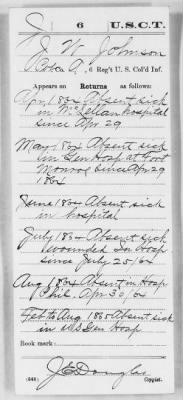 J 6 U.S.C.T.
J. W. Johnson
Co. A, 6 Reg't U. S. Col'd Inf.
Appears on Returns as follows:
Apr 1864 Absent sick
in McClellan hospital
since Apr 29
May 1864 Absent sick
in Gen Hosp at Fort
Monroe since Apr 29
1864
June 1864 Absent sick
in hospital
July 1864 Absent sick
wounded In Hosp
since July 25/64
Aug 1864 Absent in Hosp
Phil. Apr 30/64
Feb to Aug 1865 Absent sick
in U.S. Gen Hosp
Book mark:
J E Douglas
(546) Copyist.